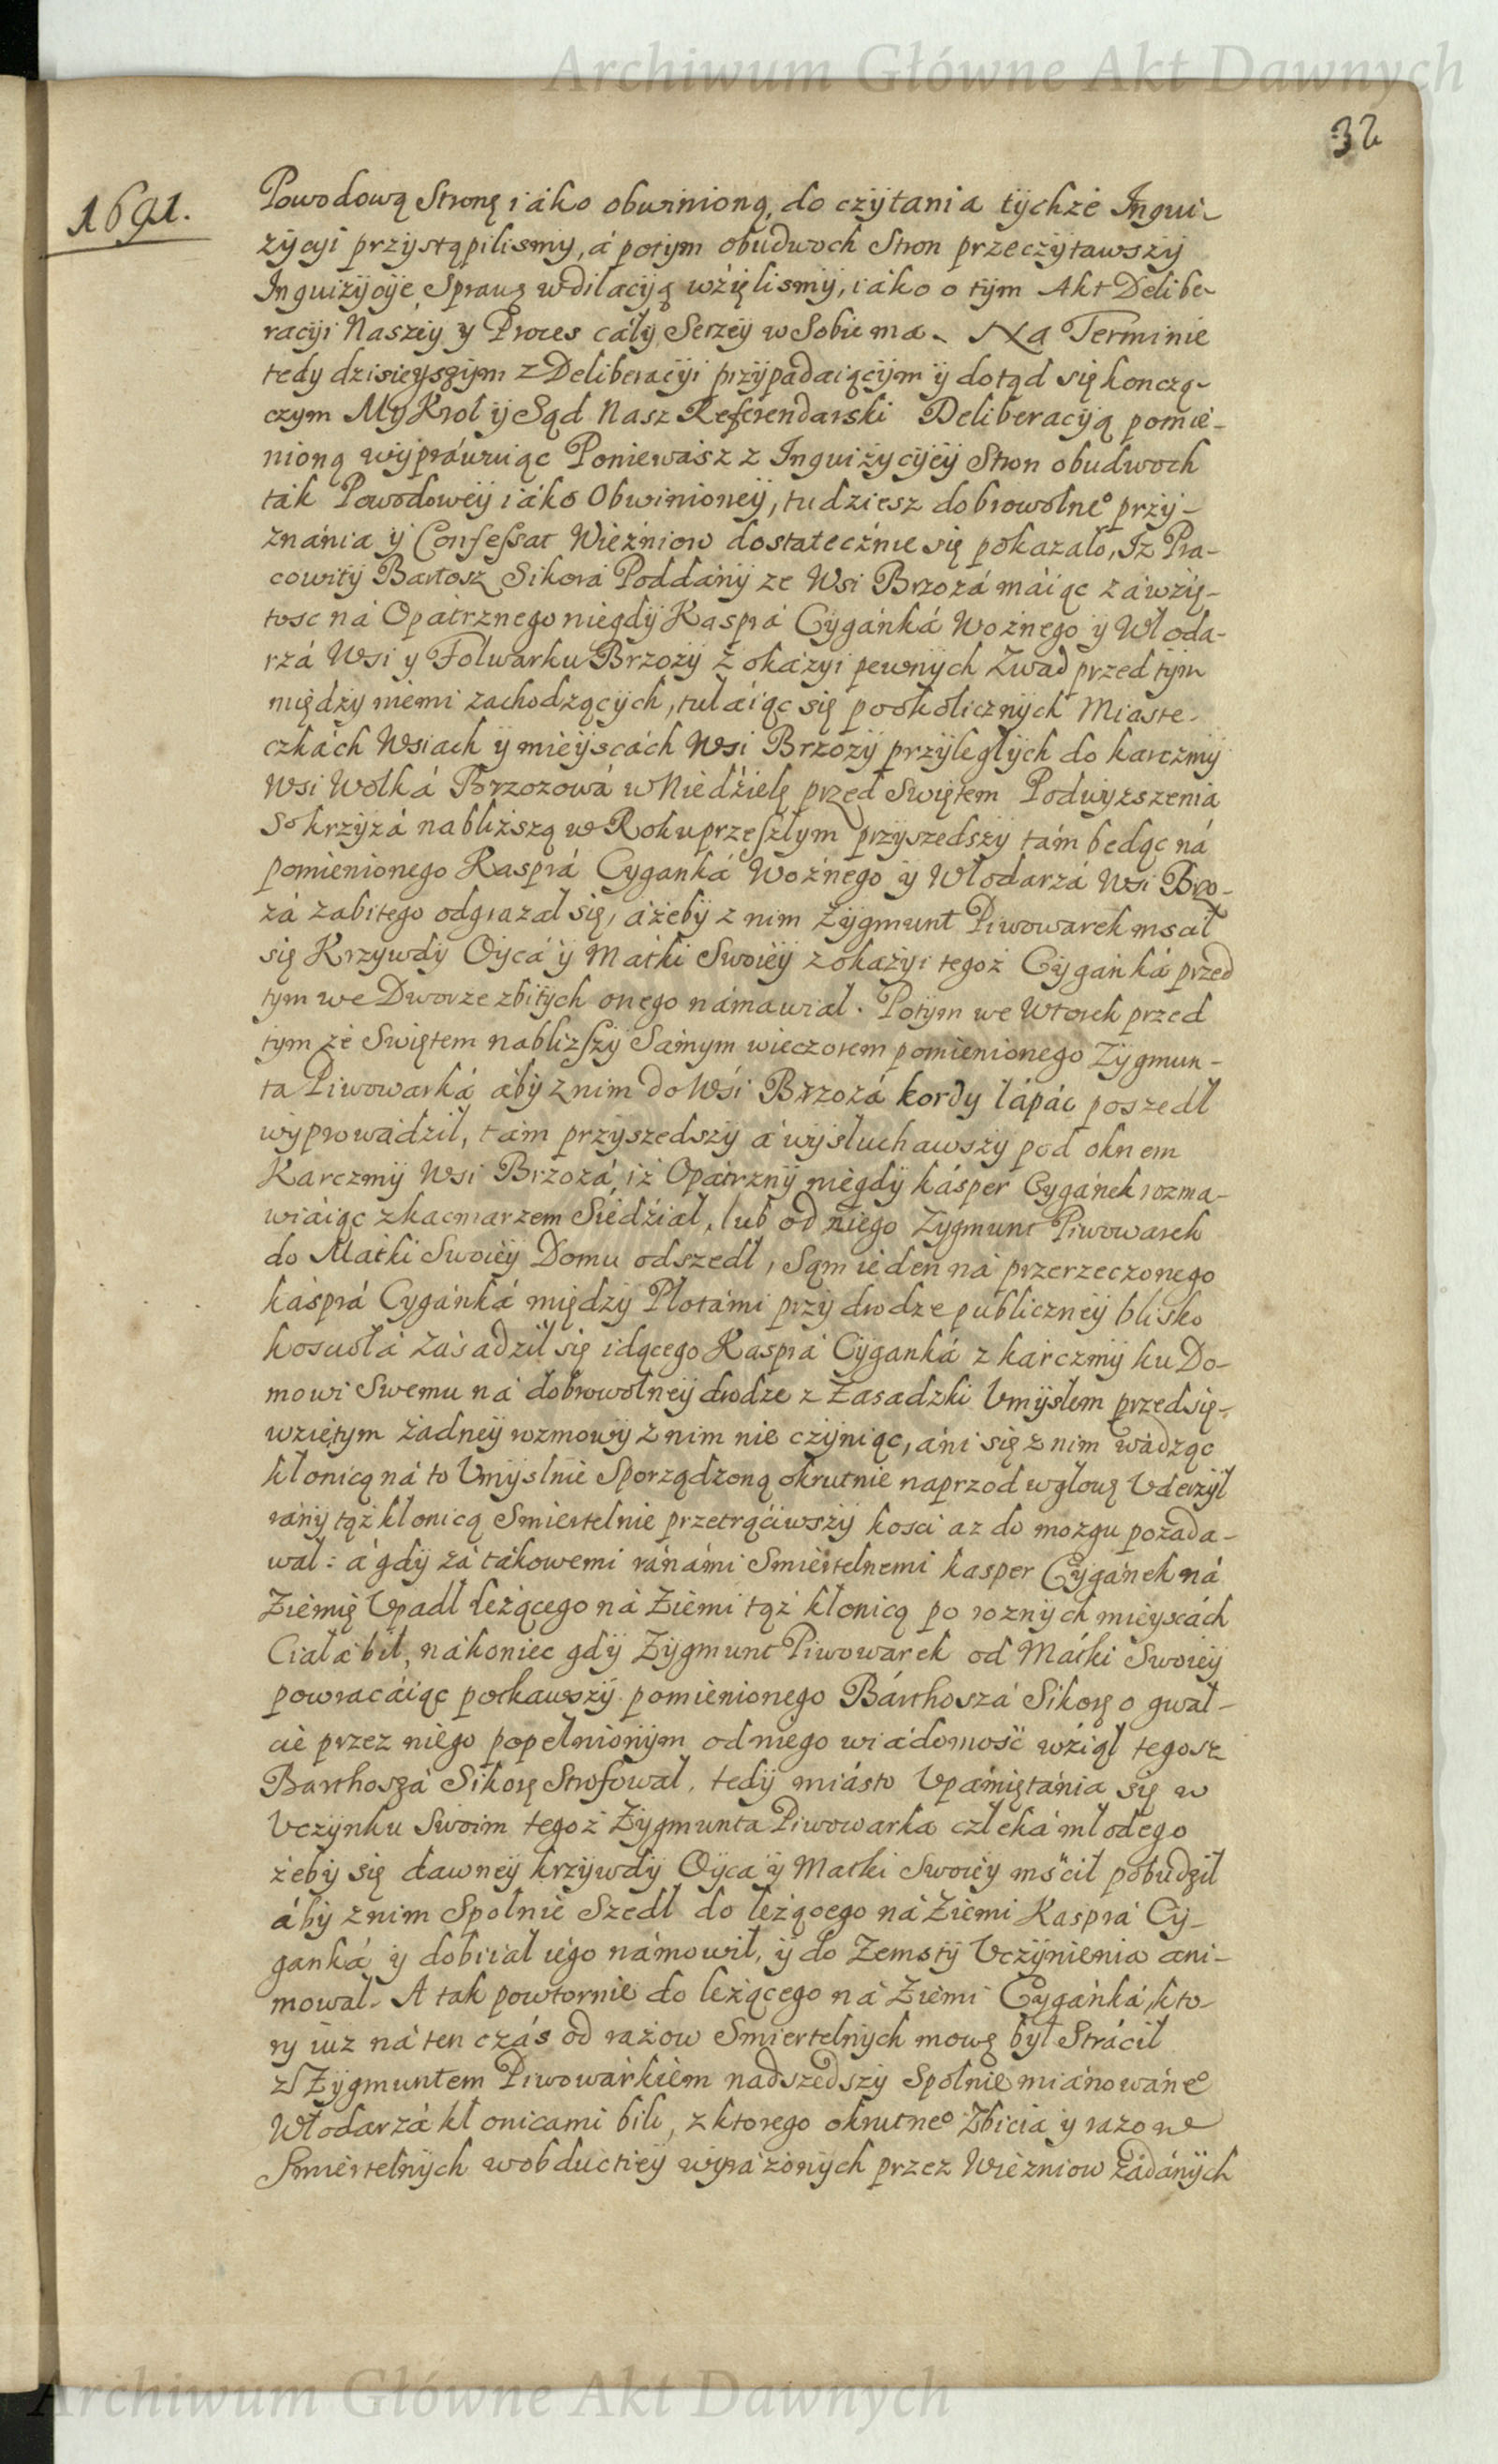 Archiwum Główne Akt Dawnych
32
1691.
Powodową Stronę iáko obwinioną, do czÿtania tÿchże Inqui-
zÿcÿi przÿstąpilismÿ, á potÿm obudwoch Stron przeczÿtawszÿ
Inquizÿcÿie Sprawę w dilacÿią wźięlismÿ, iáko o tÿm Akt Delibe-
racÿi Naszeÿ y Proces cáłÿ Serzeÿ w Sobie ma. Na Terminie
tedy dzisieÿszÿm z Deliberacÿi przÿpádaiącÿm ÿ dotąd się koncżą-
czym My Krol ÿ Sąd Nasz Referendarski Deliberacÿią pomie-
nioną wÿpráwuiąc Poniewasz z Inquizÿcÿiéÿ Stron obudwoch
ták Powodoweÿ iáko Obwinioneÿ, tudziesz dobrowolneº przÿ-
znánia ÿ Confessat Wieźniow dostatecżnie się pokazało, Iż Pra-
cowitÿ Bartosz Sikorá Poddánÿ ze Wsi Brzozá máiąc záwzię-
tosc ná Opátrznego niegdÿ Kasprá Cÿgánká Woźnego ÿ Włoda-
rzá Wsi y Folwarku Brzozÿ z okázÿi pewnÿch Zwad przed tÿm
międzÿ niemi zachodzącÿch, tułáiąc się po okolicznÿch Miaste-
czkách Wsiach ÿ mieÿscách Wsi Brzozÿ przÿległÿch do karczmÿ
Wsi Wolká Brzozowá w Niedźielę przed Swiętem Podwÿższenia
Sº krzÿżá nabliższą w Roku przeszłym przÿszedszÿ tám będąc ná
pomienionego Kasprá Cyganká Woźnego ÿ Włodarzá Wsi Brzo-
zá zabitego odgrazał się, áżebÿ z nim Zÿgmunt Piwowarek msał
się Krzywdÿ Oÿcá ÿ Mátki Swoiéÿ z okázÿi tegoż Cÿgánká przed
tÿm we Dworze zbitÿch onego námawiał. Potÿm we Wtorek przed
tÿm że Swiętem nabliższÿ Sámÿm wieczorem pomienionego Zÿgmun-
ta Piwowarká ábÿ z nim do Wśi Brzozá kordy łápác poszedł
wÿprowádził, tám przÿszedszÿ á wÿsłuchawszÿ pod oknem
Karczmÿ Wsi Brzozá, iż Opátrznÿ niegdÿ kásper Cygánek rozma-
wiáiąc z kacmarzem Siedźiał, lub od niego Zygmunt Piwowarek
do Mátki Swoiéÿ Domu odszedł, Sąm ieden ná przerzeczonego
kásprá Cygánká międzÿ Płotámi przÿ drodze publiczneÿ blisko
koscioła zásadził się idącego Kasprá Cÿganká z karczmÿ ku Do-
mowi Swemu ná dobrowolneÿ drodze z Zasadzki Vmÿslem przedsię-
wziętym żadneÿ rozmowÿ z nim nie czÿniąc, áni się z nim wádząc
kłonicą ná to Vmÿslnie Sporządzoną okrutnie naprzod w głowę Vderzył
ránÿ tąż kłonicą Smiertelnie przetrąciwszÿ kosci aż do mozgu pozada-
wał: á gdÿ zá tákowemi ránámi Smiertelnemi kasper Cygánek ná
Ziémię Vpadł leżącego ná Ziémi tąż kłonicą po roznÿch mieÿscách
Ciáłá bił, nákoniec gdÿ Zÿgmunt Piwowarek od Mátki Swoiéÿ
powracáiąc potkawszÿ pomienionego Bárthoszá Sikorę o gwał-
cie przez niego popełnionÿm od niego wiádomość wźiął tegosz
Barthoszá Sikorę Strofował, tedÿ miásto Vpámiętánia się w
Vczÿnku Swoim tegoż Zÿgmunta Piwowarka człeká młodego
żebÿ się dawneÿ krzÿwdÿ Oÿca ÿ Matki Swoiéy mścił pobudził
ábÿ z nim Spolnie Szedł do leżącego ná Ziemi Kasprá Cÿ-
ganká ÿ dobiiał iego námowił, ÿ do Zemstÿ Vczÿnienia ani-
mował. A tak powtornie do leżącego ná Ziemi Cygánká, kto-
rÿ iuz ná ten czás od rázow Smiertelnÿch mowę bÿł Strácił
z Zÿgmuntem Piwowárkiém nadszedszÿ Spolnie miánowáneº
Włodarzá kłonicami bili, z ktorego okrutneº Zbicia ÿ razow
Smiértelnÿch w obductieÿ wÿráżonÿch przez Wiéźniow zádánÿch
Archiwum Główne Akt Dawnych